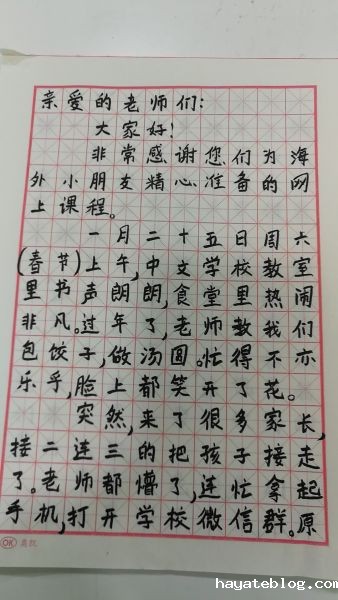 亲爱的老师们：
大家好！
非常感谢您们为海
外小朋友精心准备的网
上课程。
一月二十五日周六
(春节)上午,中文学校教室
里书声朗朗,食堂里热闹
非凡。过年了,老师教我们
包饺子,做汤圆。忙得不亦
乐乎,脸上都笑开了花。
突然,来了很多家长,
接二连三的把孩子接走
了。老师都懵了,连忙拿起
手机,打开学校微信群。原
OK
hayateblog.com